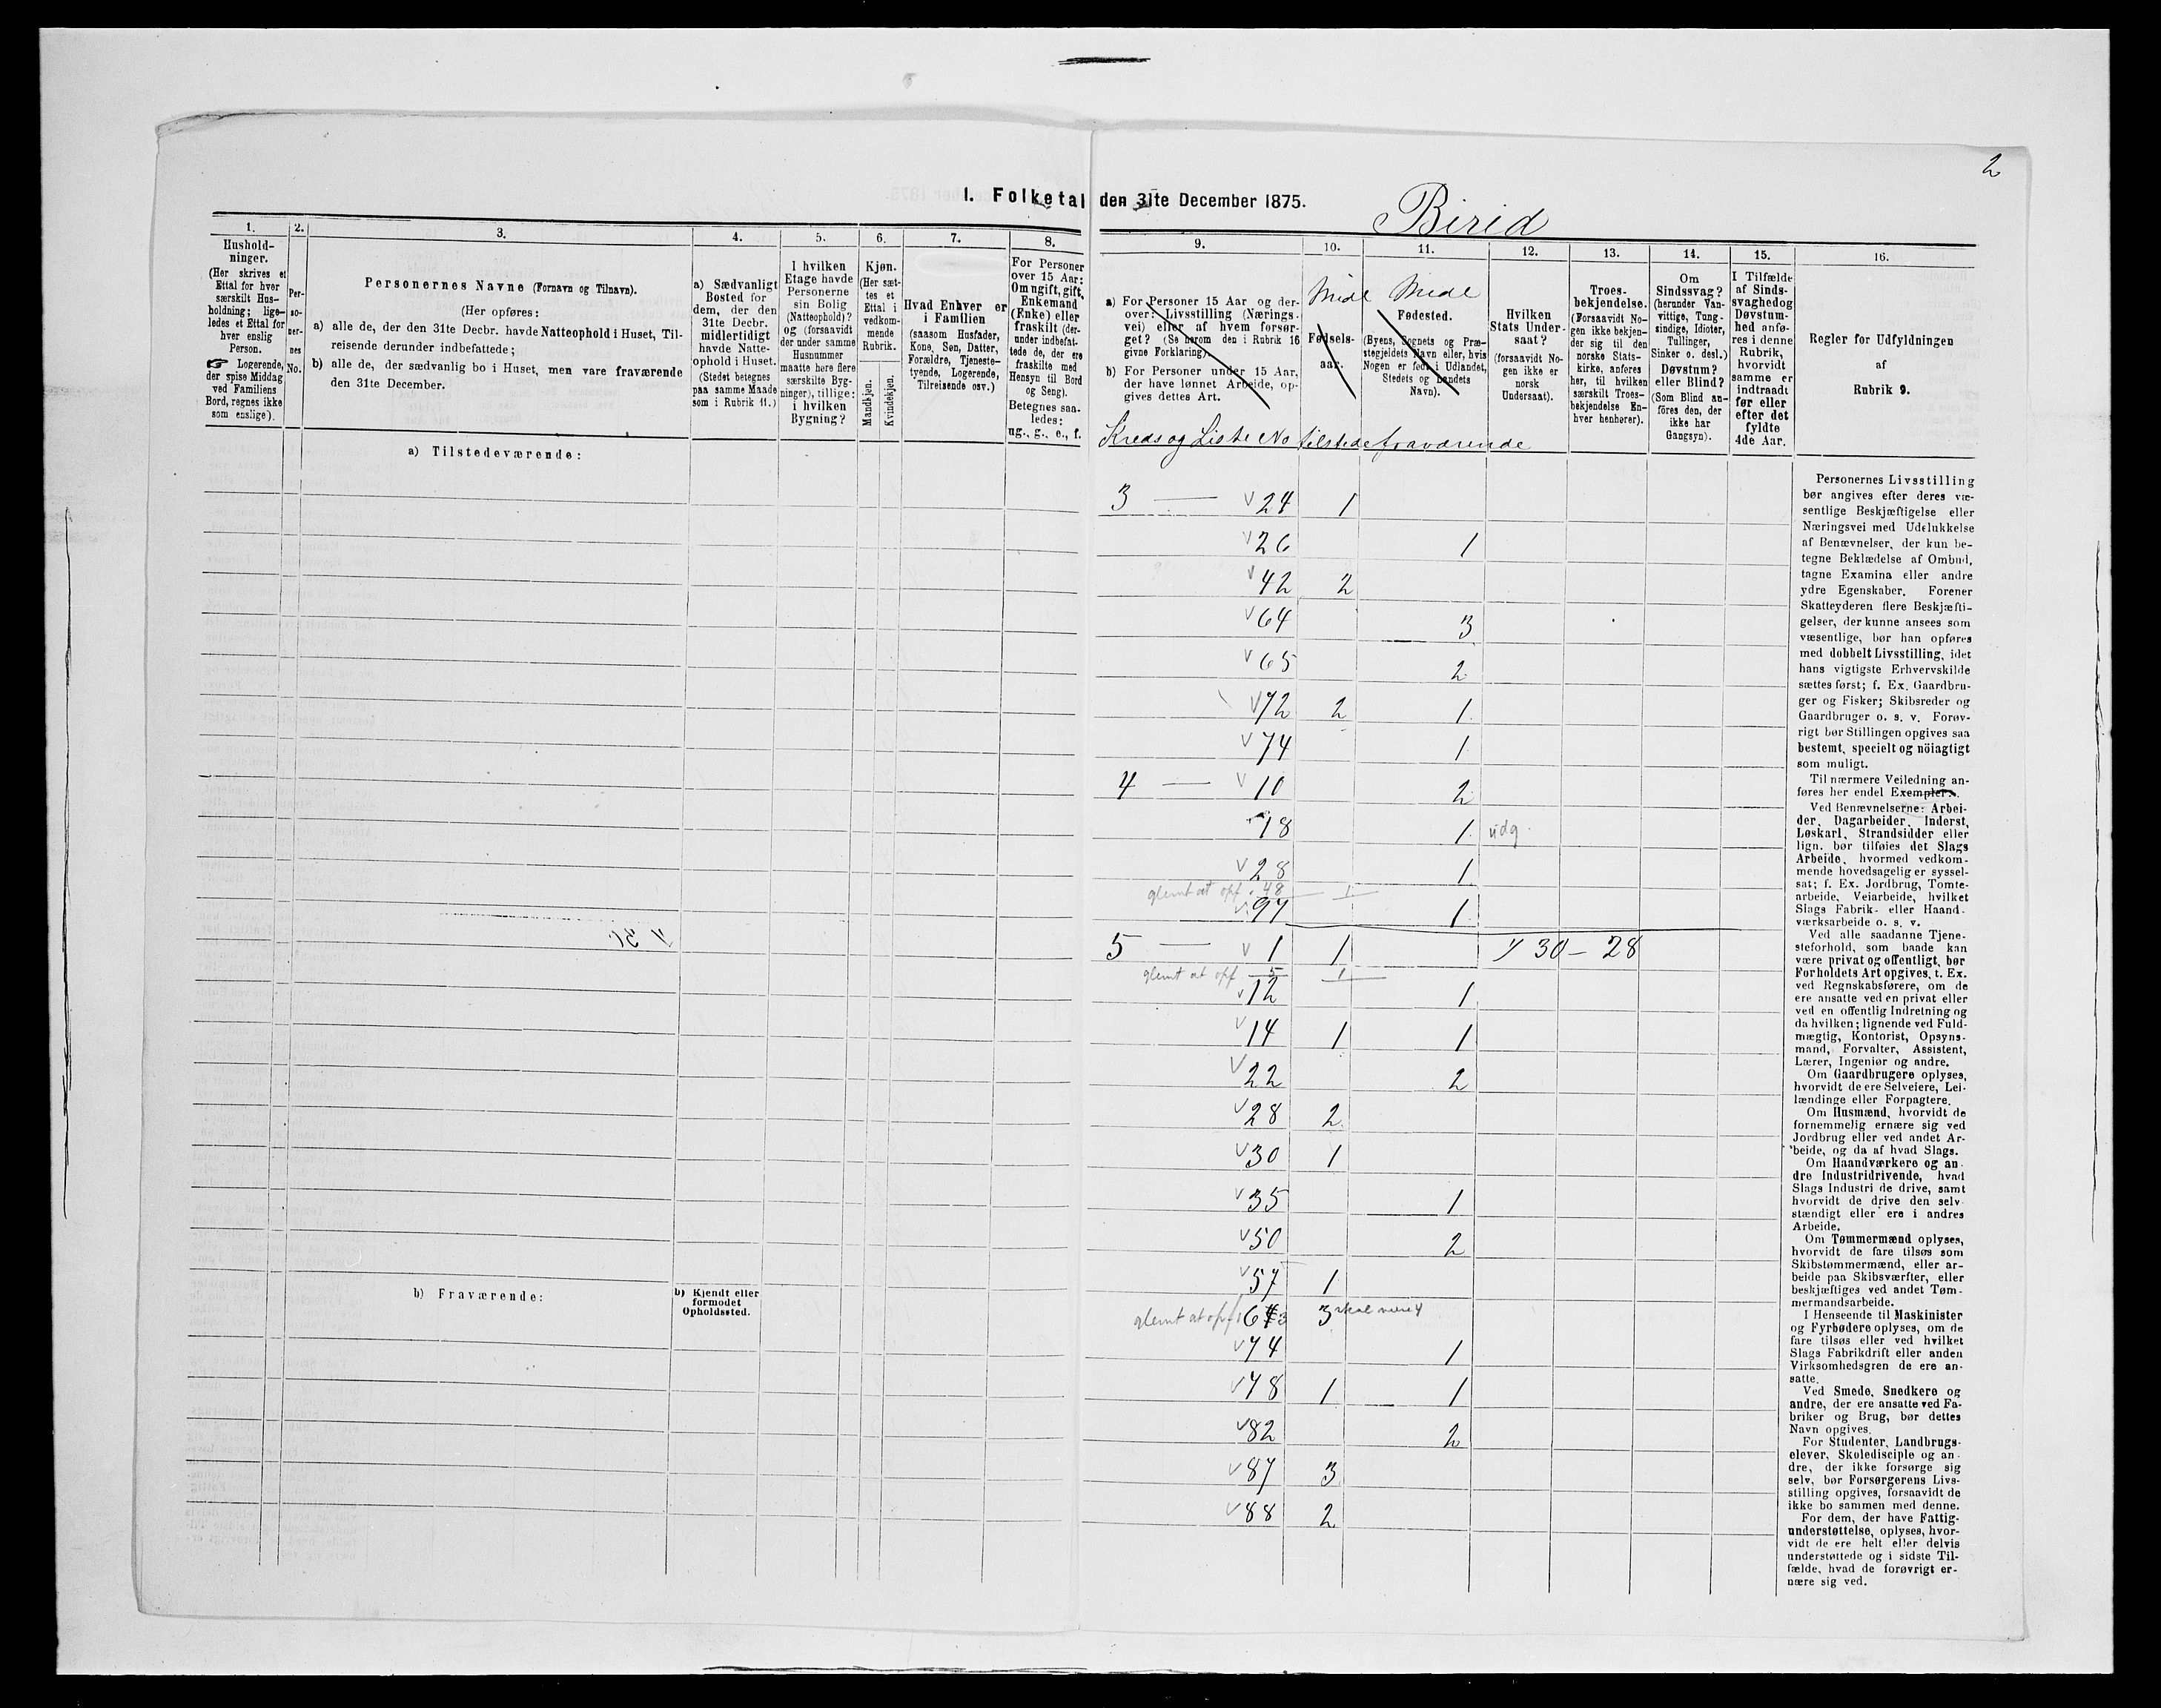 2
I. Folketal den 31te December 1875.
Birid
1.
Hushold-
ninger.
(Her skrives et
Ettal for hver
særskilt Hus-
holdning; lige-
ledes et Ettal for
hver enslig
Person.
☞ Logerende,
der spise Middag
ved Familiens
Bord, regnes ikke
som enslige).
2.
Per-
so-
ner-
nes
No.
3.
Personernes Navne (Fornavn og Tilnavn).
(Her opføres:
a) alle de, der den 31te Decbr. havde Natteophold i Huset, Til-
reisende derunder indbefattede;
b) alle de, der sædvanlig bo i Huset, men vare fraværende
den 31te December.
4.
a) Sædvanligt
Bosted for
dem, der den
31te Decbr.
midlertidigt
havde Natte-
ophold i Huset.
(Stedet betegnes
paa samme Maade
som i Rubrik 11.)
5.
I hvilken
Etage havde
Personerne
sin Bolig
(Natteophold)?
og (forsaavidt
der under samme
Husnummer
maatte høre flere
særskilte Byg-
ninger), tillige:
i hvilken
Bygning?
6.
Kjøn.
(Her sæt-
tes et
Ettal i
vedkom-
mende
Rubrik.
Mandkjøn.
Kvindekjøn.
7.
Hvad Enhver er
i Familien
(saasom Husfader,
Kone, Søn, Datter,
Forældre, Tjeneste-
tyende, Logerende,
Tilreisende osv.)
8.
For Personer
over 15 Aar:
Om ugift, gift,
Enkemand
(Enke) eller
fraskilt (der-
under indbefat-
tede de, der ere
fraskilte med
Hensyn til Bord
og Seng).
Betegnes saa-
ledes:
ug., g., e., f.
9.
a) For Personer 15 Aar og der-
over: Livsstilling (Nærings-
vei) eller af hvem forsør-
get? (Se herom den i Rubrik 16
givne Forklaring).
b) For Personer under 15 Aar,
der have lønnet Arbeide, op-
gives dettes Art.
10.
Midl
Fødsels-
aar.
11.
Midl
Fødested.
(Byens, Sognets og Præ-
stegjeldets Navn eller, hvis
Nogen er født i Udlandet,
Stedets og Landets
Navn).
12.
Hvilken
Stats Under-
saat?
(forsaavidt No-
gen ikke er
norsk
Undersaat).
13.
Troes-
bekjendelse.
(Forsaavidt No-
gen ikke bekjen-
der sig til den
norske Stats-
kirke, anføres
her, til hvilken
særskilt Troes-
bekjendelse En-
hver henhører).
14.
Om
Sindssvag?
(herunder Van-
vittige, Tung-
sindige, Idioter,
Tullinger,
Sinker o. desl.)
Døvstum?
eller Blind?
(Som Blind an-
føres den, der
ikke har
Gangsyn).
15.
I Tilfælde
af Sinds-
svaghed og
Døvstum-
hed anfø-
res i denne
Rubrik,
hvorvidt
samme er
indtraadt
før eller
efter det
fyldte
4de Aar.
16.
Regler for Udfyldningen
af
Rubrik 9.
Kreds og Liste No tilstede fraværende
a) Tilstedeværende:
3 — v 24 1
v 26 1
v 42 2
v 64 3
v 65 2
v 72 2 1
v 74 1
4 — v 10 2
18 1 udg.
v 28 1
glemt at opf. 48 — 1 —
v 97 1
5 — v 1 1 30 – 28
glemt at opf 5 1
v 12 1
v 14 1 1
v 22 2
v 28 2
v 30 1
v 35 1
v 50 2
v 57 1
glemt at opf 3 3 skal være 4
v 74 1
v 78 1 1
v 82 2
v 87 3
v 88 2
b) Fraværende:
b) Kjendt eller
formodet
Opholdssted.
Personernes Livsstilling
bør angives efter deres væ-
sentlige Beskjæftigelse eller
Næringsvei med Udelukkelse
af Benævnelser, der kun be-
tegne Beklædelse af Ombud,
tagne Examina eller andre
ydre Egenskaber. Forener
Skatteyderen flere Beskjæfti-
gelser, der kunne ansees som
væsentlige, bør han opføres
med dobbelt Livsstilling, idet
hans vigtigste Erhvervskilde
sættes først; f. Ex. Gaardbru-
ger og Fisker; Skibsreder og
Gaardbruger o. s. v. Forøv-
rigt bør Stillingen opgives saa
bestemt, specielt og nöiagtigt
som muligt.
Til nærmere Veiledning an-
føres her endel Exempler:
Ved Benævnelserne: Arbei-
der, Dagarbeider, Inderst,
Løskarl, Strandsidder eller
lign. bør tilføies det Slags
Arbeide, hvormed vedkom-
mende hovedsagelig er syssel-
sat; f. Ex. Jordbrug, Tomte-
arbeide, Veiarbeide, hvilket
Slags Fabrik- eller Haand-
værksarbeide o. s. v.
Ved alle saadanne Tjene-
steforhold, som baade kan
være privat og offentligt, bør
Forholdets Art opgives, t. Ex.
ved Regnskabsførere, om de
ere ansatte ved en privat eller
ved en offentlig Indretning og
da hvilken; lignende ved Fuld-
mægtig, Kontorist, Opsyns-
mand, Forvalter, Assistent,
Lærer, Ingeniør og andre.
Om Gaardbrugere oplyses,
hvorvidt de ere Selveiere, Lei-
lændinge eller Forpagtere.
Om Husmænd, hvorvidt de
fornemmelig ernære sig ved
Jordbrug eller ved andet Ar-
beide, og da af hvad Slags.
Om Haandværkere og an-
dre Industridrivende, hvad
Slags Industri de drive, samt
hvorvidt de drive den selv-
stændigt eller ere i andres
Arbeide.
Om Tømmermænd oplyses,
hvorvidt de fare tilsøs som
Skibstømmermænd, eller ar-
beide paa Skibsværfter, eller
beskjæftiges ved andet Tøm-
mermandsarbeide.
I Henseende til Maskinister
og Fyrbødere oplyses, om de
fare tilsøs eller ved hvilket
Slags Fabrikdrift eller anden
Virksomhedsgren de ere an-
satte.
Ved Smede, Snedkere og
andre, der ere ansatte ved Fa-
briker og Brug, bør dettes
Navn opgives.
For Studenter, Landbrugs-
elever, Skoledisciple og an-
dre, der ikke forsørge sig
selv, bør Forsørgerens Livs-
stilling opgives, forsaavidt de
ikke bo sammen med denne.
For dem, der have Fattig-
understøttelse, oplyses, hvor-
vidt de ere helt eller delvis
understøttede og i sidste Til-
fælde, hvad de forøvrigt er-
nære sig ved.